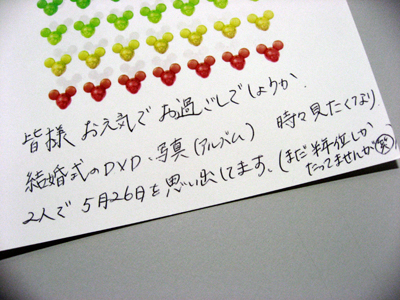 皆様 お元気で お過ごしでしょうか.
結婚式のDVD、写真(アルバム) 時々見たくなり
2人で 5月26日を思い出してます、(まだ半年位しか
たってませんが㊤笑)